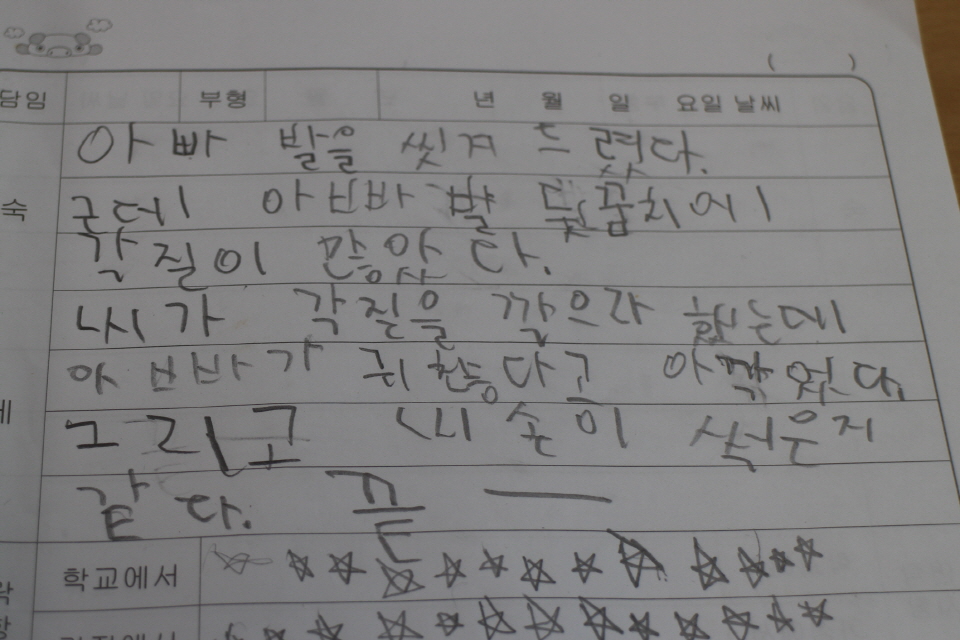 ( )
담임 부형 년 월 일 요일 날씨
아빠 발을 씻겨 드렸다.
숙 근데 아빠 발 뒷꿈치에
각질이 많았다.
내가 각질을 깎으라 했는데
아빠가 귀찮다고 아깎었다.
그리고 내 손이 썩은지
같다. 끝
학교에서